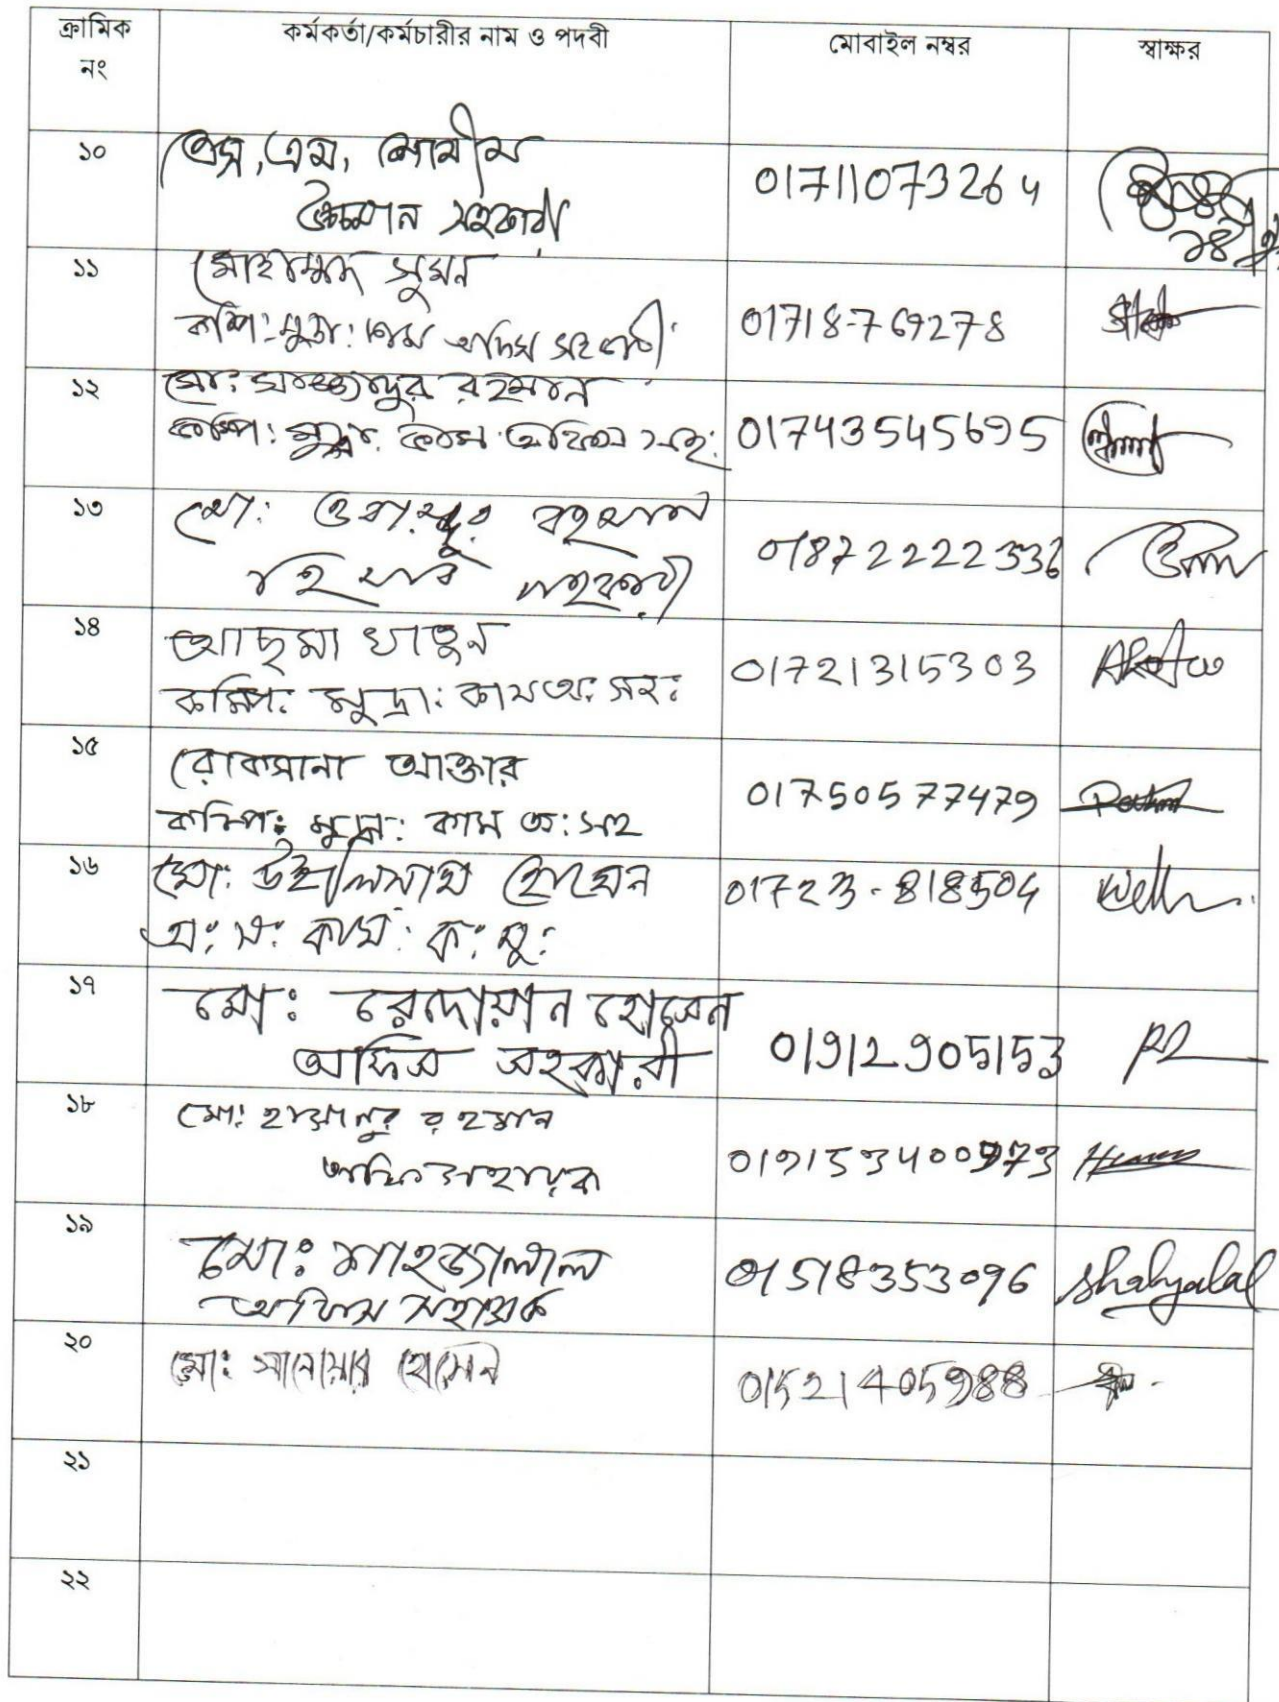 ক্রামিক নং
কর্মকর্তা/কর্মচারীর নাম ও পদবী
মোবাইল নম্বর
স্বাক্ষর
১০
এস, এম, শামীম
উচ্চমান সহকারী
01711073264
১১
মোহাম্মদ সুমন
কম্পি: মুদ্রা: কাম অফিস সহকারী
01718-769278
১২
মো: রহমান
কম্পি: মুদ্রা: কাম অফিস সহ:
01743545695
১৩
মো: ওবায়দুর রহমান
হিসাব সহকারী
01872222336
১৪
আছমা খাতুন
কম্পি: মুদ্রা: কাম অ: সহ:
01721315303
১৫
রোকসানা আক্তার
কম্পি: মুদ্রা: কাম অ: সহ
01750577479
১৬
মো: উইলিয়াম হোসেন
অ: স: কাম: ক: মু:
01723-818504
১৭
মো: রেদোয়ান হোসেন
অফিস সহকারী
01912905153
১৮
মো: হাসানুর রহমান
অফিস সহায়ক
১৯
মো: শাহজালাল
অফিস সহায়ক
01518353096
Shahjalal
২০
মো: সানোয়ার হোসেন
01521405988
২১
২২